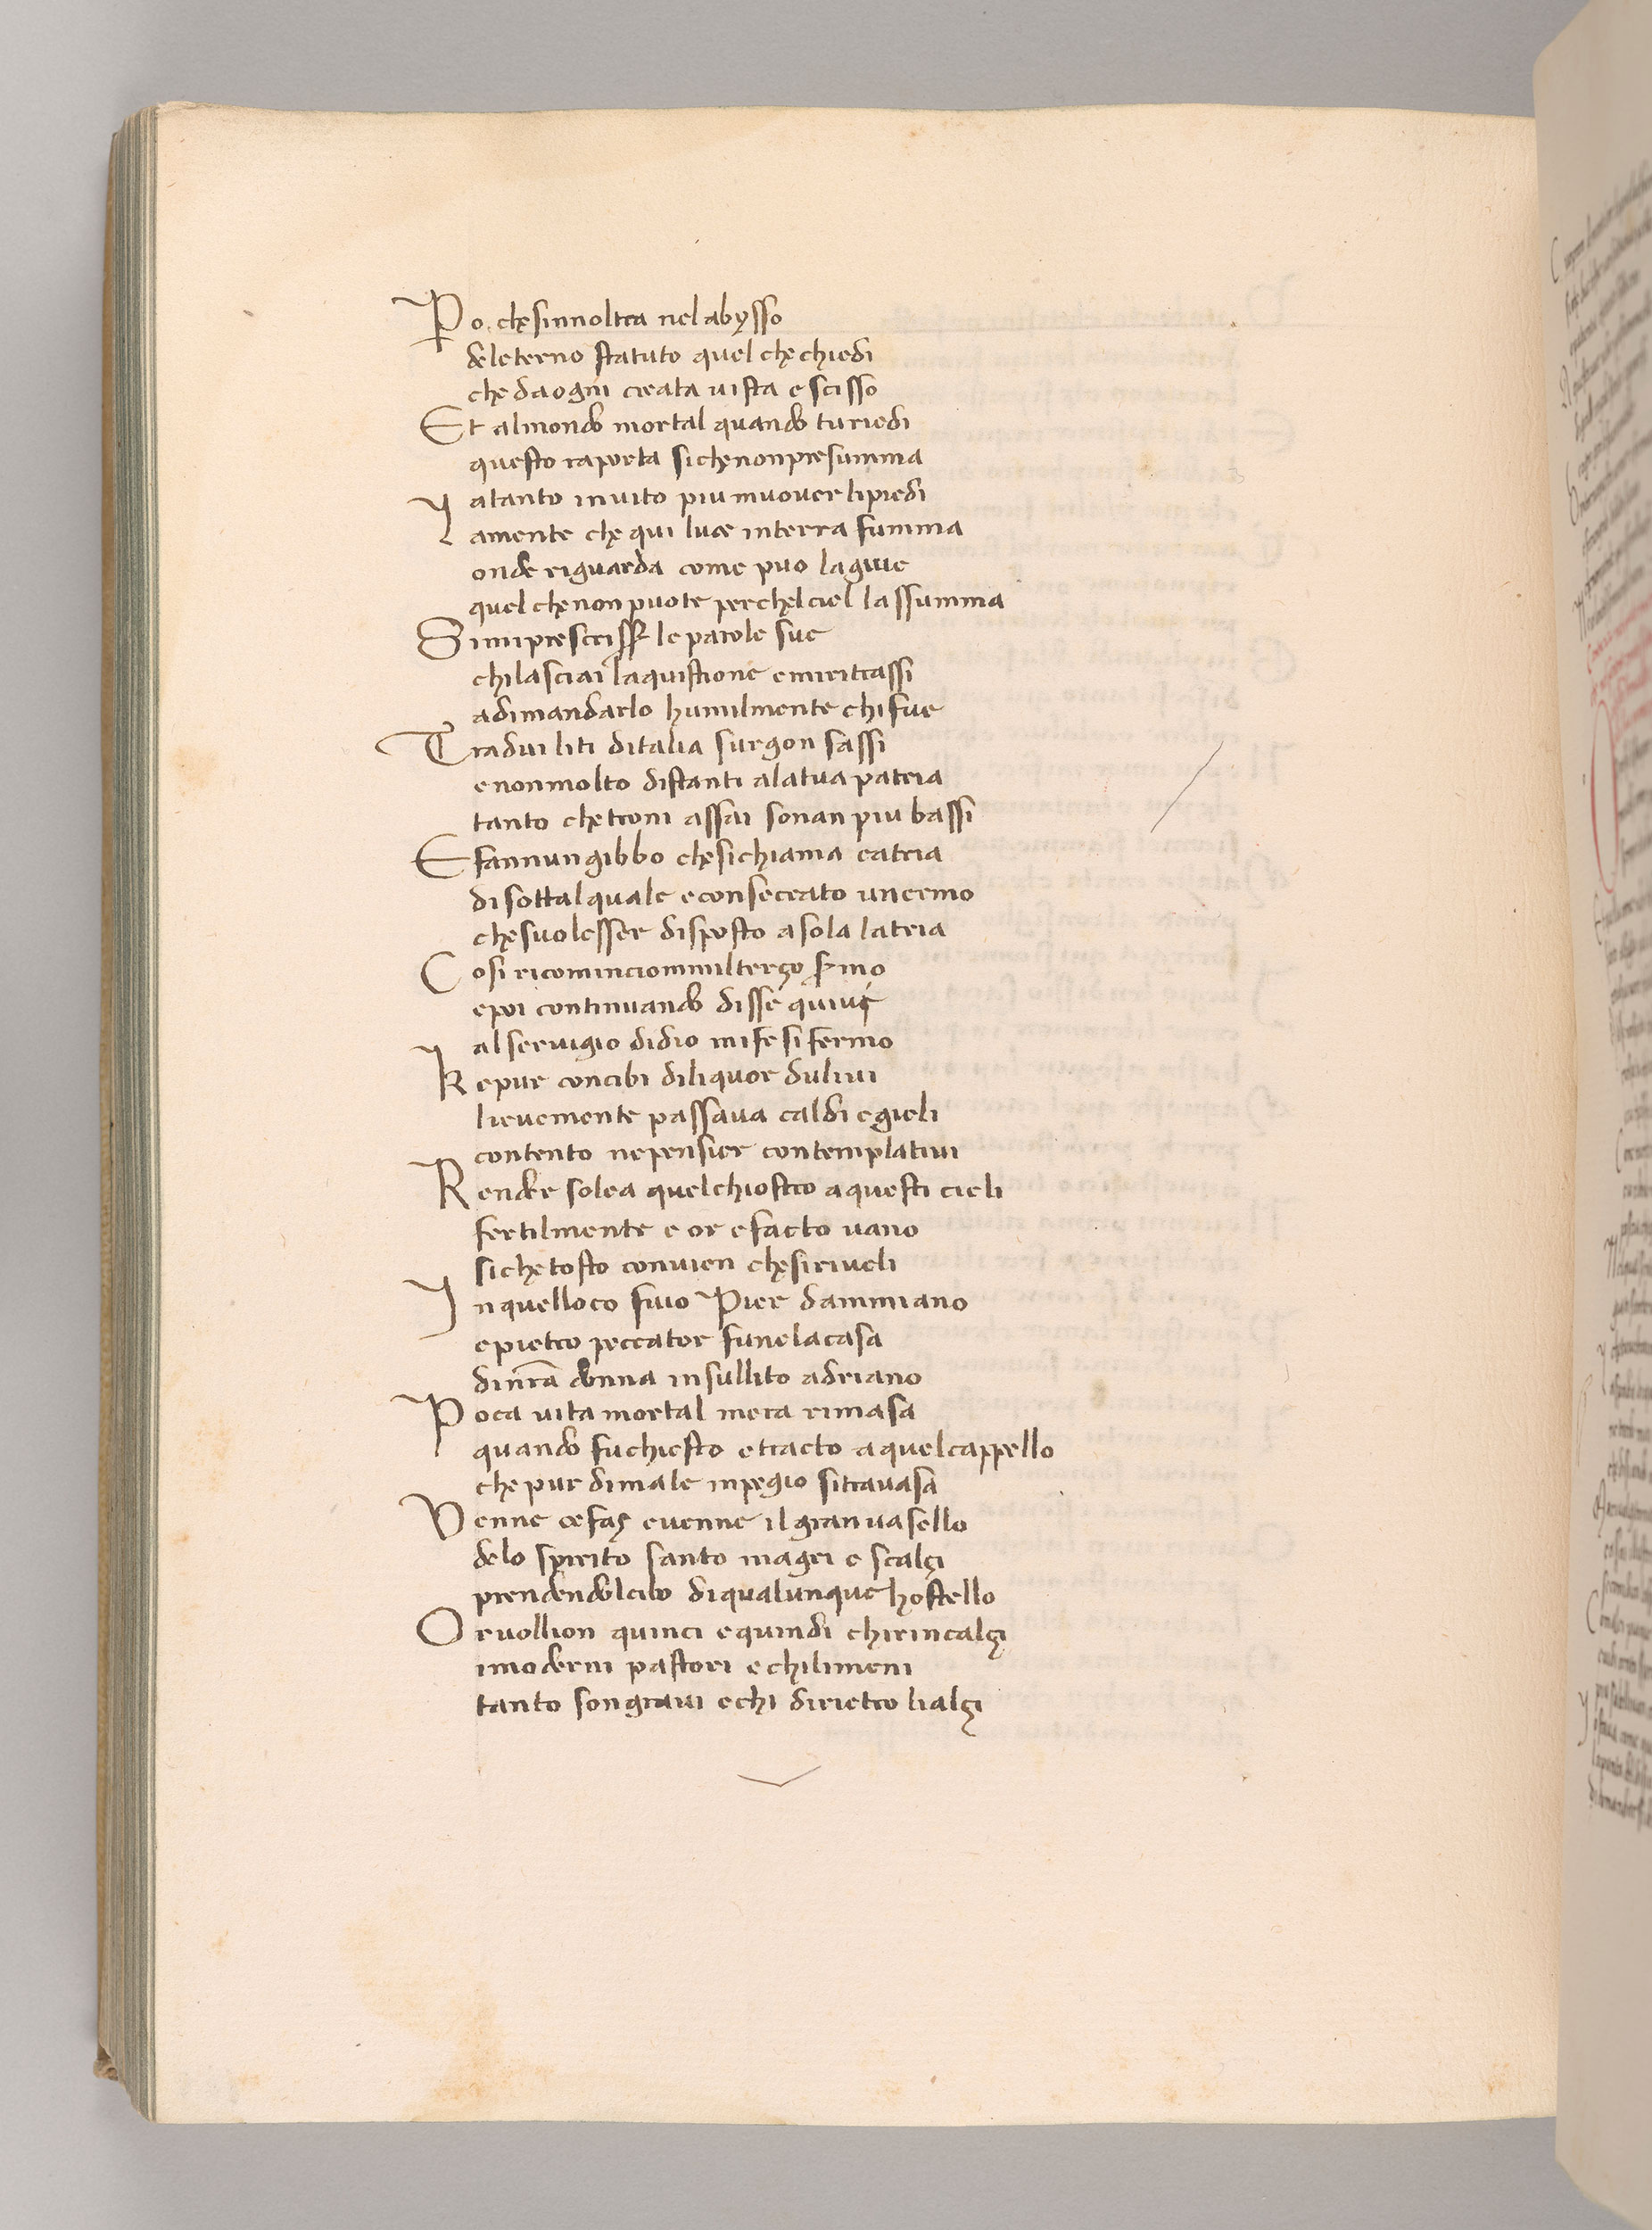 Po chesinnoltra nel abysso
deleterno statuto quel che chiedi
che daogni creata uista e scisso
Et almondo mortal quando turiedi
questo raporta sichenonpresumma
atanto muito piu muouer lipiedi
Lamente che qui luce interra fumma
onde riguarda come puo lagiue
quel chenon puote perchelciel lassumma
Simiprescrisser le parole sue
chilasciai laquistione emiritrassi
adimandarlo humilmente chi fue
Tradui liti ditalia surgon sassi
enonmolto distanti alatua patria
tanto che troni assai sonan piu bassi
E fannungibbo chesichiama catria
disottalquale econsecrato unermo
chesuolesser disposto asola latria
Cosi ricominciommilterço sermo
epoi continuando disse quiui
alseruigio didio mifesi fermo
k epur concibi diliquor duliui
lieuemente passaua caldi egieli
contento nepensier contemplatiui
Render solea quelchiostro aquesti cieli
fertilmente e or efacto uano
siche tosto conuien chesiriueli
Inquelloco fuio Pier dammiano
epietro peccator funelacasa
dinr̄a donna insullito adriano
Poca uita mortal mera rimasa
quando fuchiesto etracto aquelcappello
che pur dimale inpegio sitrauasa
Venne cefas euenne il gran uasello
delo spirito santo magri e scalçi
prendendolcibo diqualunque hostello
Oruollion quinci equindi chirincalçi
imoderni pastori echilimeni
tanto songraui echi dirietro lialçi